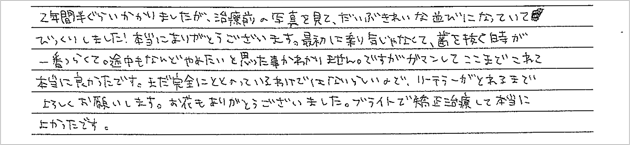 2年間半ぐらいかかりましたが、治療前の写真を見て、だいぶきれいな並びになっていて
びっくりしました!本当にありがとうございます。最初に乗り気じゃなくて、歯を抜く時が
一番つらくて。途中もなんどやめたいと思った事かわかりません。ですがガマンしてここまでこれて
本当に良かったです。まだ完全にととのっているわけではないらしいので、リテーラーがとれるまで
よろしくお願いします。お花もありがとうございました。ブライトで矯正治療して本当に
よかったです。